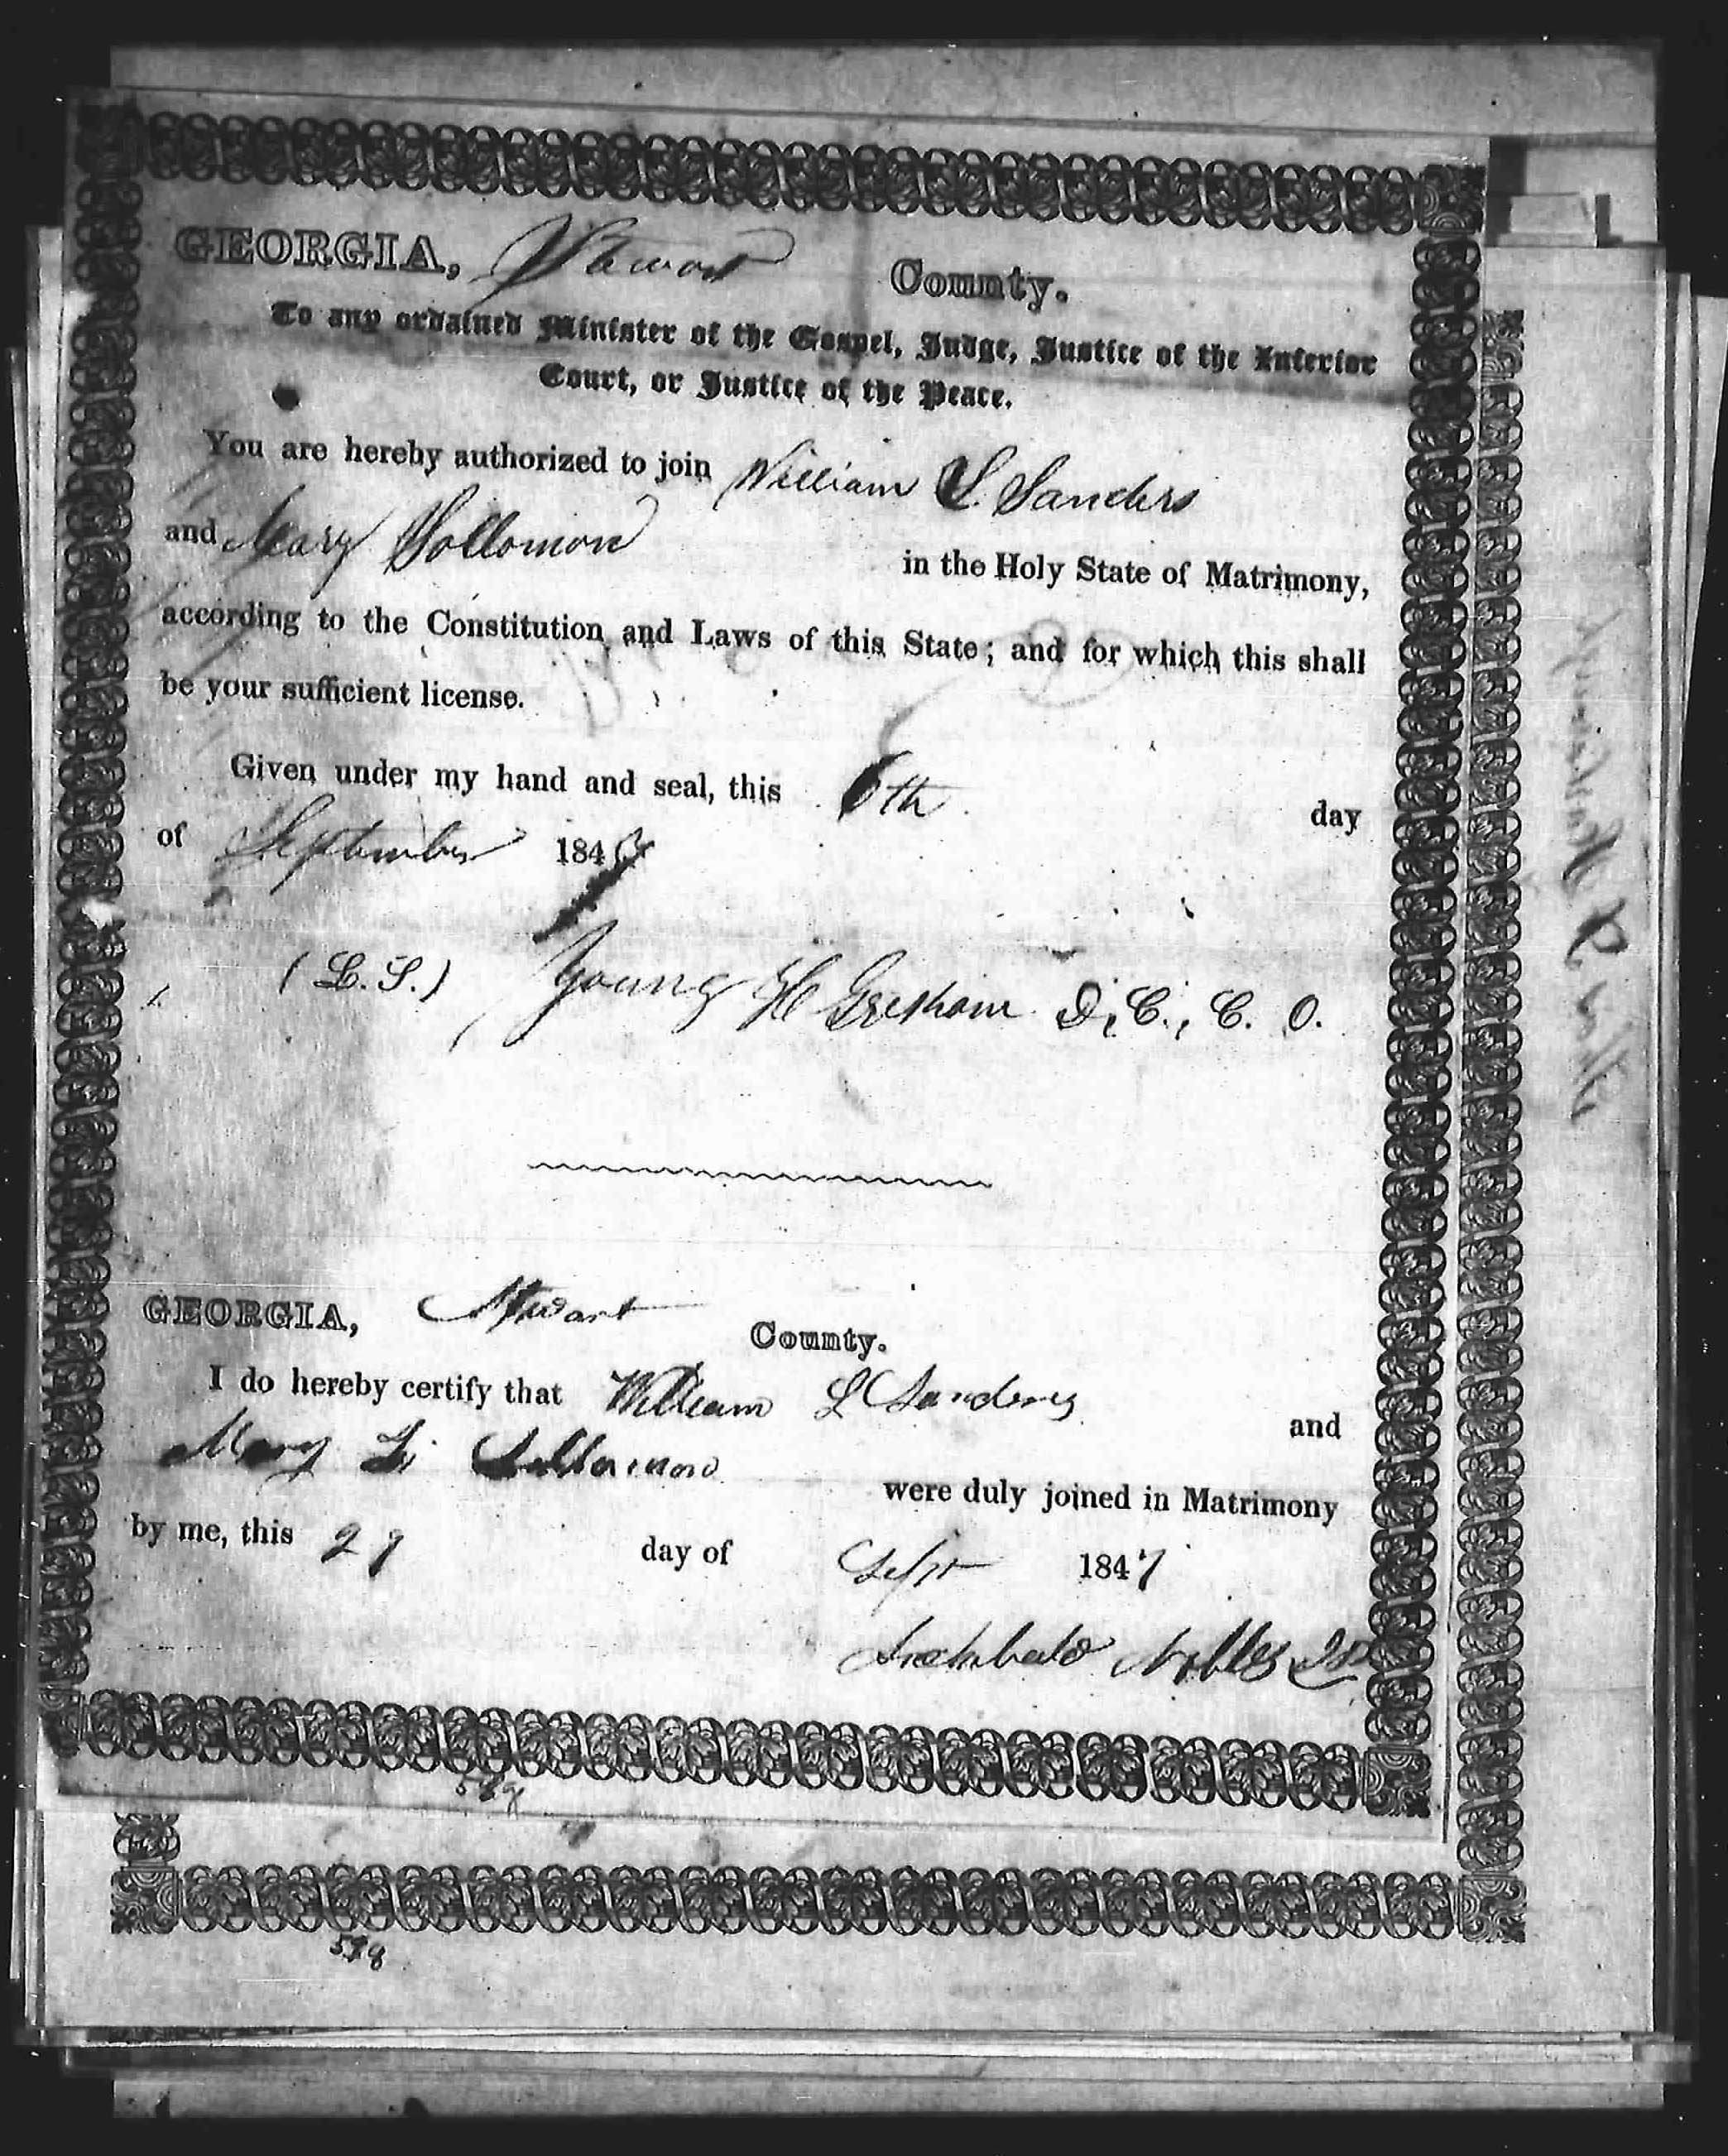 GEORGIA, Stewart County.
To any ordained Minister of the Gospel, Judge, Justice of the Interior
Court, or Justice of the Peace.
You are hereby authorized to join William L. Sanders
and Mary Sollomon in the Holy State of Matrimony,
according to the Constitution and Laws of this State; and for which this shall
be your sufficient license.
Given under my hand and seal, this 6th day
of September 184
(L.S.) Young H Gresham D.C., C. O.
GEORGIA, Stewart County.
I do hereby certify that William L Sanders and
Mary Sollomon were duly joined in Matrimony
by me, this day of Sept 1847
Archibald Nobles JP
598